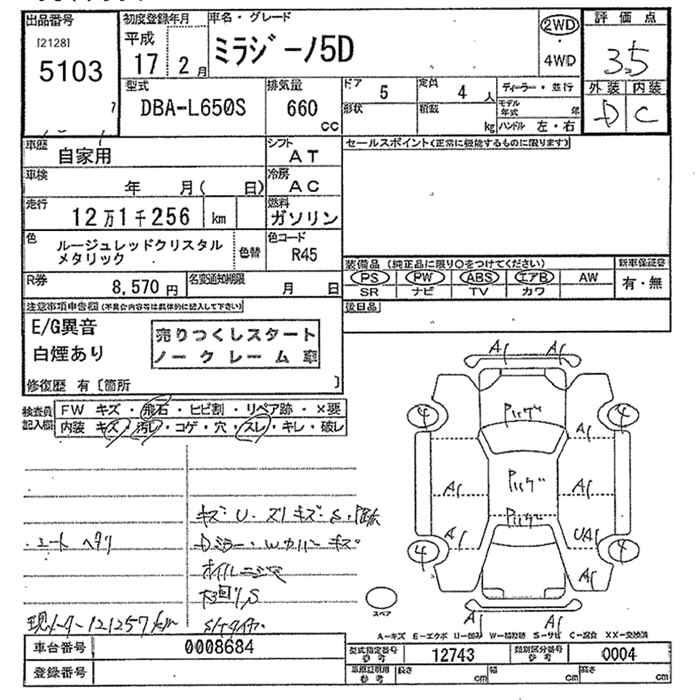 出品番号 初度登録年月 車名・グレード 2WD 評価点
[2128] 平成 ミラジーノ5D ・ 3.5
5103 17年 2月 4WD
外装 内装
D C
型式 排気量 ドア 5 定員 4人 ディーラー・並行
DBA-L650S 660cc 形状 積載 kg モデル年式 年
ハンドル 左・右
車歴 自家用 シフト AT セールスポイント(正常に機能するものに限ります)
車検 年 月( 日) 冷房 AC
走行 12万1千256 km 燃料 ガソリン
色 ルージュレッドクリスタル 色替 色コード R45
メタリック
装備品(純正品に限り○をつけてください) 新車保証書
R券 8,570円 名変通知期限 月 日 PS PW ABS エアB AW 有・無
SR ナビ TV カワ
注意事項申告欄(不具合内容等は具体的に記入して下さい) 後日品
E/G異音 売りつくしスタート
白煙あり ノークレーム車
修復歴 有〔箇所 〕
検査員 FW キズ・飛石・ヒビ割・リペア跡・×要
記入欄 内装 キズ・汚レ・コゲ・穴・スレ・キレ・破レ
A1 A1
4 4
A1
A1 A1
A1 UA1
4 4
A1
A1 A1
キズ U・スリキズ S・
シート ヘタリ Dミラー・Wカバー キズ
オイルニジミ
下回りS
現メーター121257km
スペア
A-キズ E-エクボ U-凹み W-補修跡 S-サビ C-腐食 XX-交換済
車台番号 0008684 型式指定番号 参考 12743 類別区分番号 参考 0004
登録番号 車庫証明用 参考 長さ cm 幅 cm 高さ cm